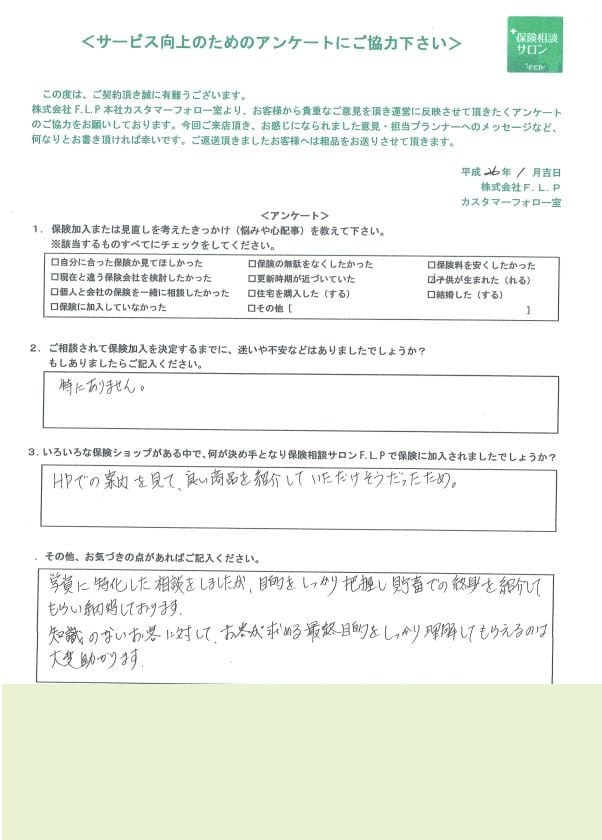 ＜サービス向上のためのアンケートにご協力下さい＞
保険相談
サロン
F.L.P
この度は、ご契約頂き誠に有難うございます。
株式会社F.L.P本社カスタマーフォロー室より、お客様から貴重なご意見を頂き運営に反映させて頂きたくアンケート
のご協力をお願いしております。今回ご来店頂き、お感じになられました意見・担当プランナーへのメッセージなど、
何なりとお書き頂ければ幸いです。ご返送頂きましたお客様へは粗品をお送りさせて頂きます。
平成 26 年 1 月吉日
株式会社F.L.P
カスタマーフォロー室
＜アンケート＞
1．保険加入または見直しを考えたきっかけ（悩みや心配事）を教えて下さい。
※該当するものすべてにチェックをしてください。
□自分に合った保険か見てほしかった □保険の無駄をなくしたかった □保険料を安くしたかった
□現在と違う保険会社を検討したかった □更新時期が近づいていた ☑子供が生まれた（れる）
□個人と会社の保険を一緒に相談したかった □住宅を購入した（する） □結婚した（する）
□保険に加入していなかった □その他［ ］
2．ご相談されて保険加入を決定するまでに、迷いや不安などはありましたでしょうか？
もしありましたらご記入ください。
特にありません。
3．いろいろな保険ショップがある中で、何が決め手となり保険相談サロンF.L.Pで保険に加入されましたでしょうか？
HPでの案内を見て、良い商品を紹介していただけそうだったため。
．その他、お気づきの点があればご記入ください。
学資に特化した相談をしましたが、目的をしっかり把握し貯蓄での終身を紹介して
もらい納得しております。
知識のないお客に対して、お客が求める最終目的をしっかり理解してもらえるのは
大変助かります。